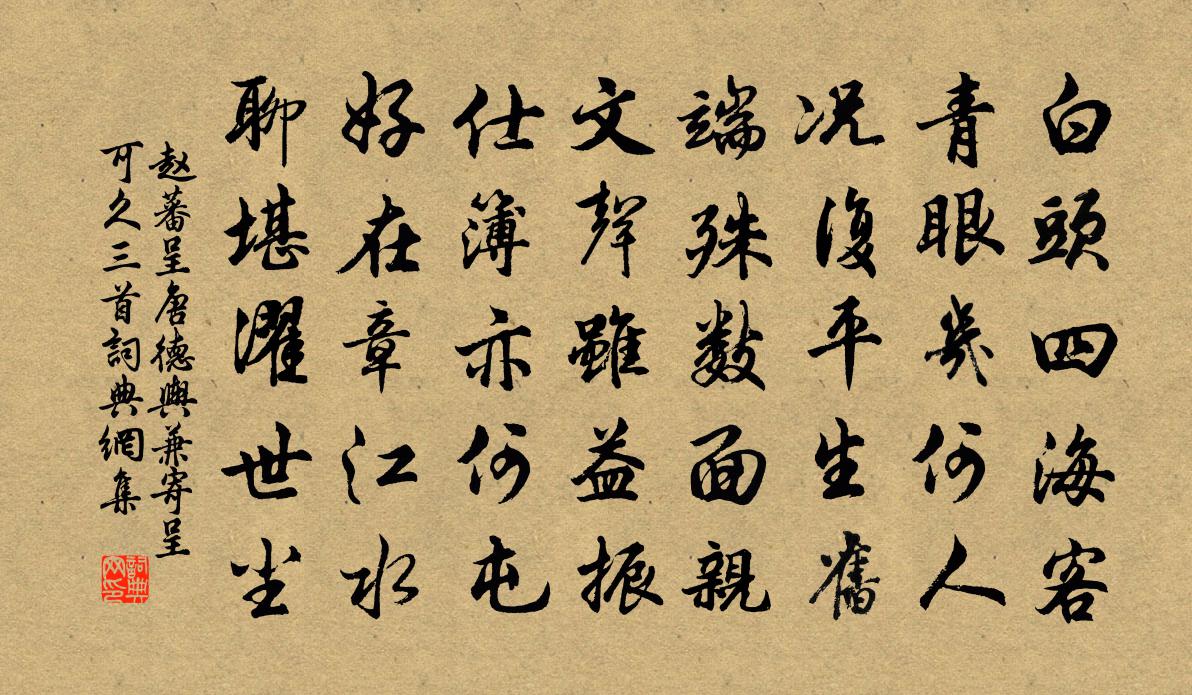 白頭四海客
青眼幾何人
况復平生舊
端殊數面親
文聲雖益振
仕簿亦何屯
好在章江水
聊堪濯世尘
赵蕃呈唐德輿兼寄呈
可久三首詞典網集
詞典
网印